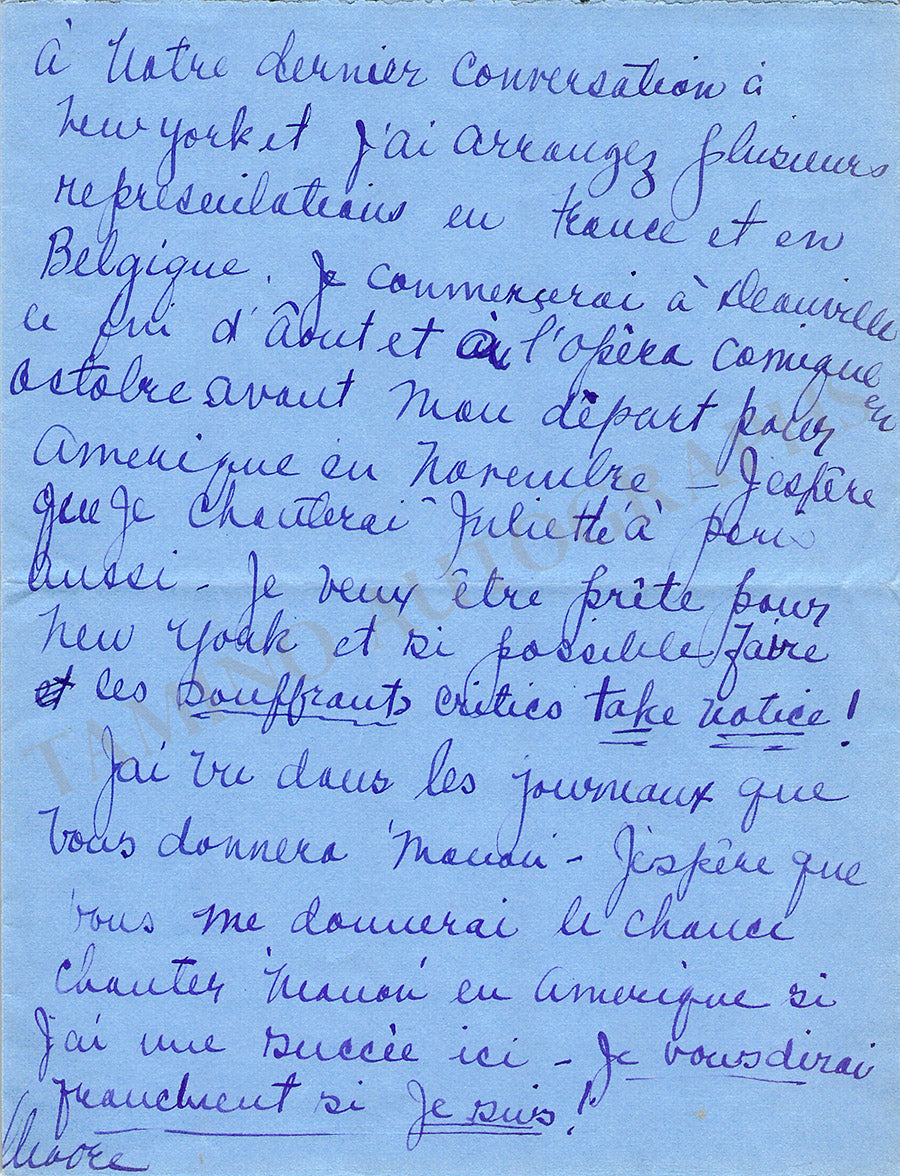 à Notre dernier conversation à
New York et J'ai arrangez plusieurs
representations en France et en
Belgique. Je commencerai à Deauville
le fin d'Âout et à l'opèra comique en
octobre avant mon dèpart pour
Amerique en Novembre - J'espère
que Je chanterai "Juliette" à paris
aussi - Je veux être prête pour
New York et si possible faire
les souffrants critics take notice!
J'ai vu dans les journaux que
vous donnera 'Manon' - J'espère que
vous me donnerai le chance
chanter 'Manon' en Amerique si
J'ai une succèe ici - Je vous dirai
franchment si Je suis!
Moore
TAMINO AUTOGRAPHS